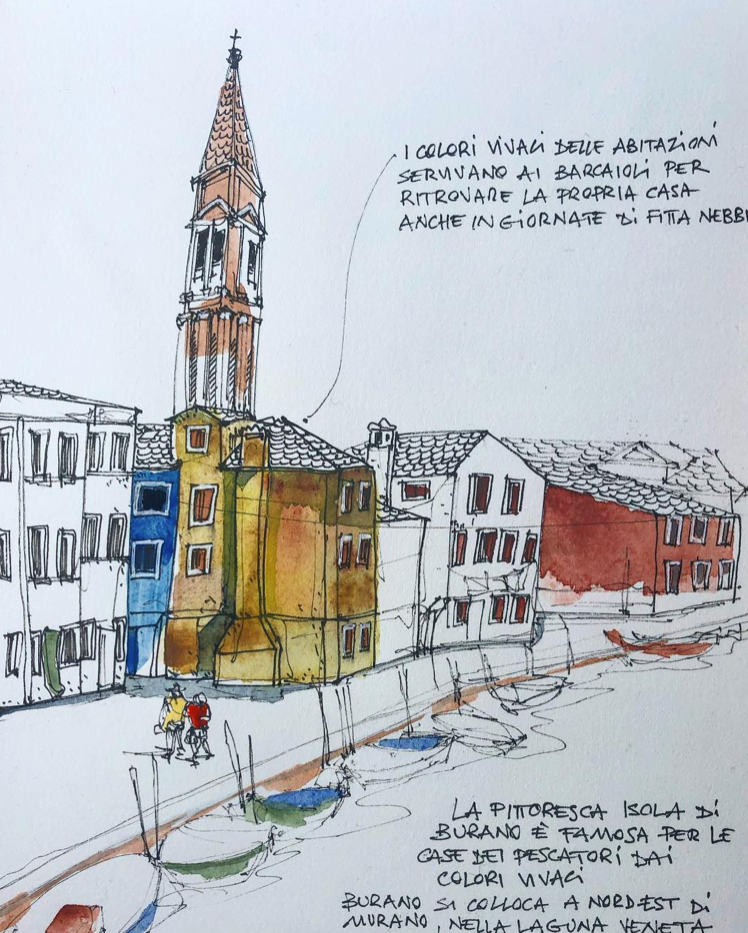 I COLORI VIVACI DELLE ABITAZIONI
SERVIVANO AI BARCAIOLI PER
RITROVARE LA PROPRIA CASA
ANCHE IN GIORNATE DI FITTA NEBBI
LA PITTORESCA ISOLA DI
BURANO È FAMOSA PER LE
CASE DEI PESCATORI DAI
COLORI VIVACI
BURANO SI COLLOCA A NORD-EST DI
MURANO, NELLA LAGUNA VENETA